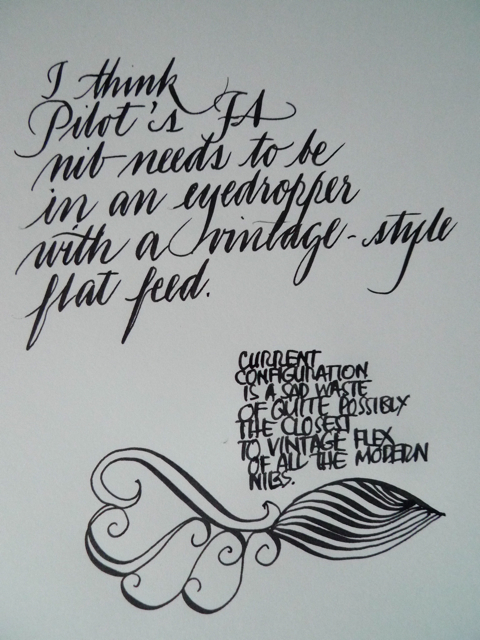 I think
Pilot's FA
nib needs to be
in an eyedropper
with a vintage-style
flat feed.
CURRENT
CONFIGURATION
IS A SAD WASTE
OF QUITE POSSIBLY
THE CLOSEST
TO VINTAGE FLEX
OF ALL THE MODERN
NIBS.